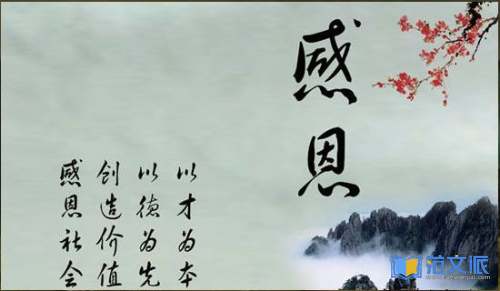 感恩
以才为本
以德为先
创造价值
感恩社会
范文派